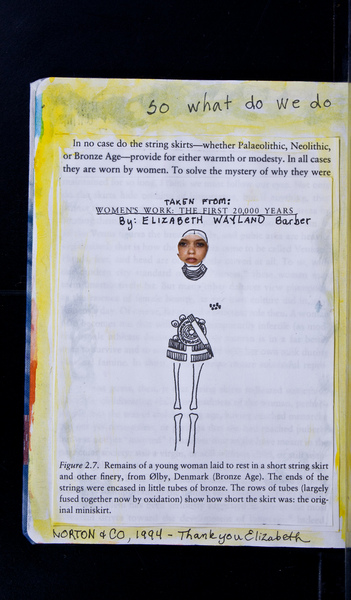 so what do we do
In no case do the string skirts—whether Palaeolithic, Neolithic,
or Bronze Age—provide for either warmth or modesty. In all cases
they are worn by women. To solve the mystery of why they were
TAKEN FROM:
WOMEN'S WORK: THE FIRST 20,000 YEARS
By: ELIZABETH WAYLAND Barber
Figure 2.7. Remains of a young woman laid to rest in a short string skirt
and other finery, from Ølby, Denmark (Bronze Age). The ends of the
strings were encased in little tubes of bronze. The rows of tubes (largely
fused together now by oxidation) show how short the skirt was: the orig-
inal miniskirt.
NORTON & CO, 1994 - Thank you Elizabeth